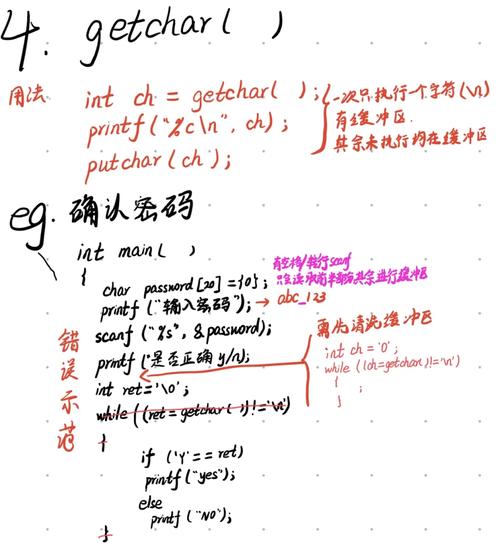 4. getchar( )
用法 int ch = getchar( ); 一次只执行一个字符(\n)
printf("%c\n", ch); 有缓冲区.
putchar(ch); 其余未执行均在缓冲区
eg. 确认密码
int main( )
{
有空格/转行scanf
char password[20]={0}; 只会读取前半部分其余进行缓冲区
printf("输入密码"); → abc_123
scanf("%s", &password); 需先清洗缓冲区
printf("是否正确y/n);
int ch='0';
int ret='\0';
while ((ch=getchar)!='\n')
{
;
}
while ((ret=getchar())!='\n')
{
if ('Y'==ret)
printf("yes");
else
printf("NO");
}
错误示范